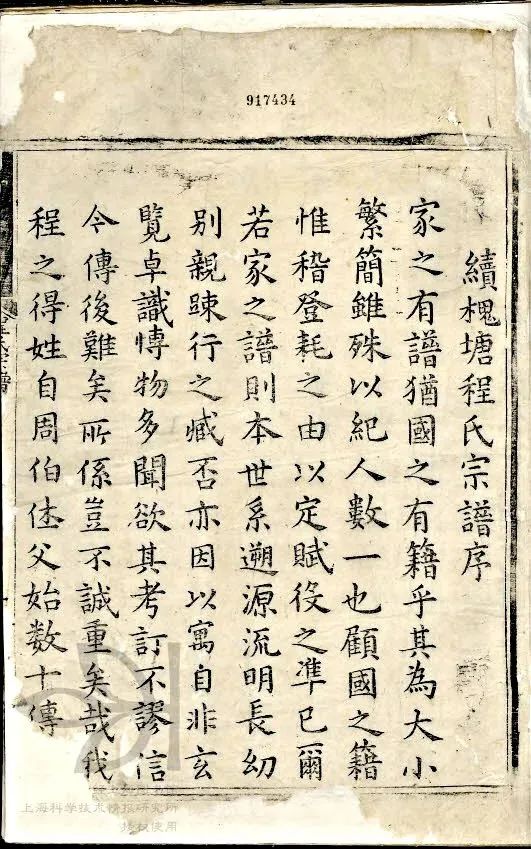 917434
續槐塘程氏宗譜序
家之有譜猶國之有籍乎其為大小
繁簡雖殊以紀人數一也顧國之籍
惟稽登耗之由以定賦役之準已爾
若家之譜則本世系遡源流明長幼
別親踈行之臧否亦因以寓自非玄
覽卓識愽物多聞欲其考訂不謬信
今傳後難矣所係豈不誠重矣哉我
程之得姓自周伯休父始数十傳
上海科学技术情报研究所
授权使用